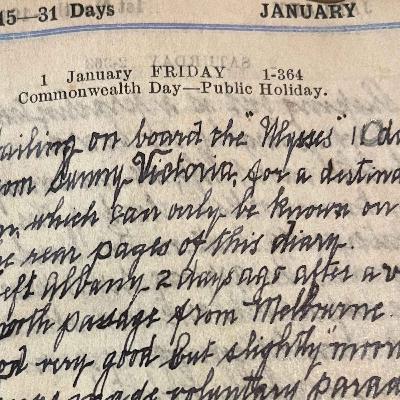 15—31 Days JANUARY
1 January FRIDAY 1-364
Commonwealth Day—Public Holiday.
ailing on board the "Ulysses" 10 da
om Sunny Victoria, for a destina
n, which can only be known on
he rear pages of this diary.
eft Albany 2 days ago after a v
ooth passage from Melbourne.
od very good but slightly "mon
made voluntary parad